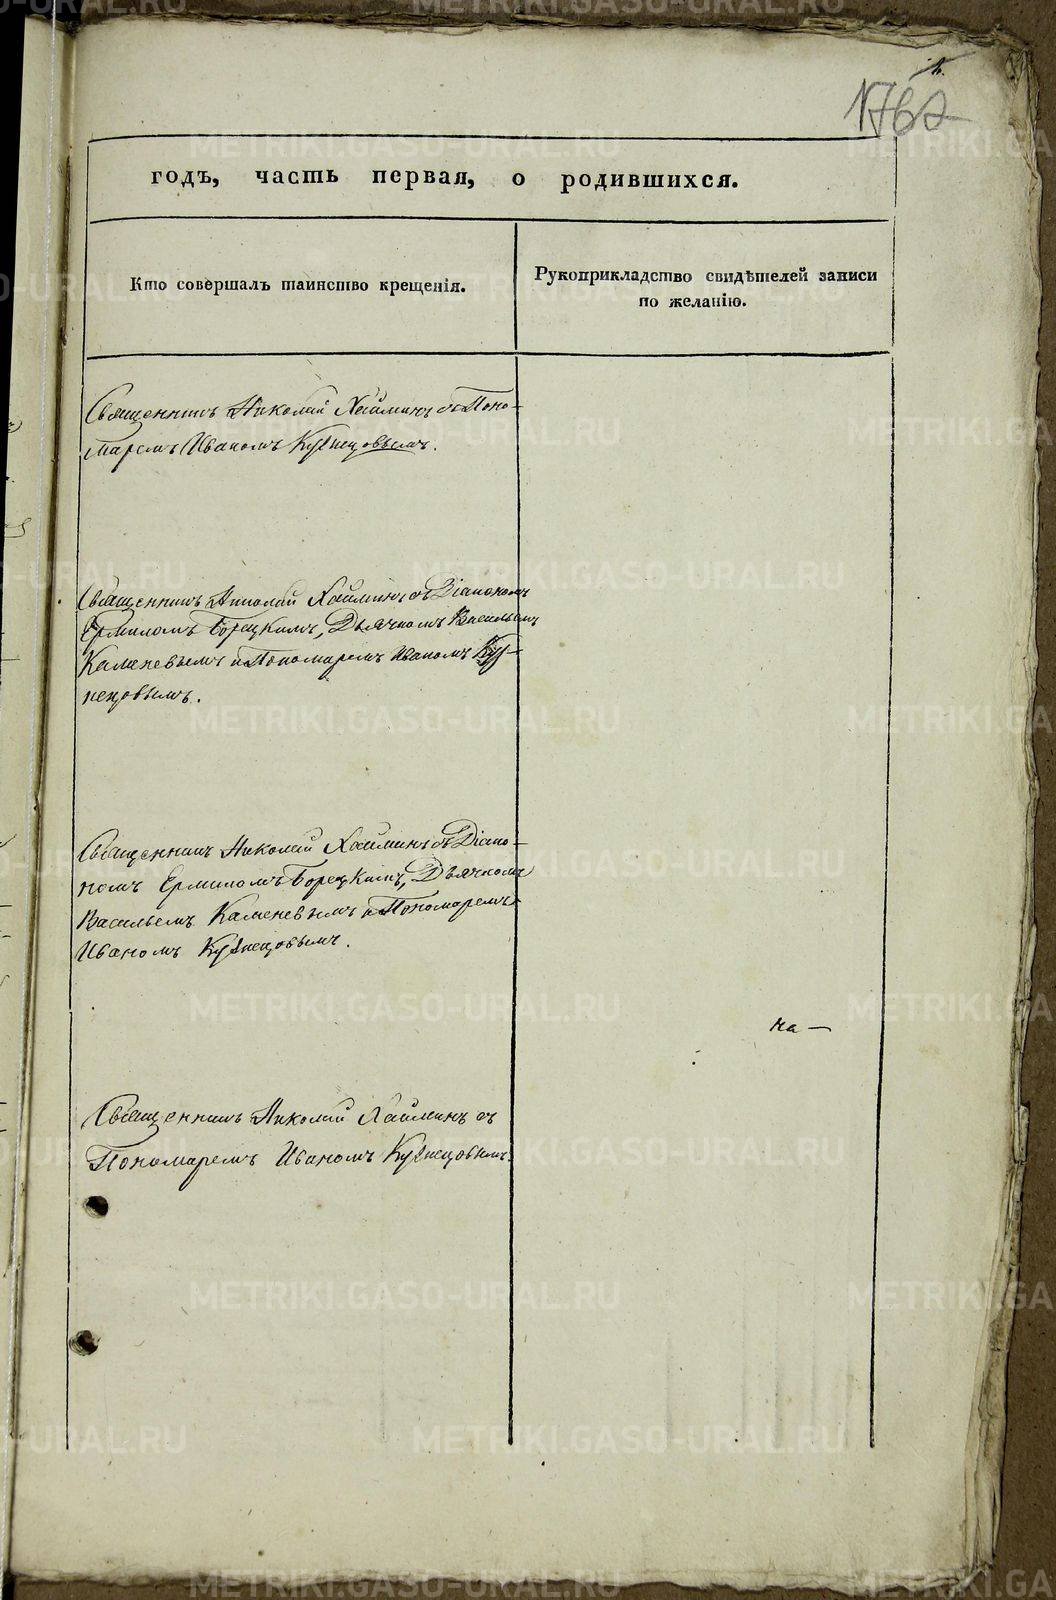 1762
годъ, часть первая, о родившихся.
Кто совершалъ таинство крещенія.
Рукоприкладство свидѣтелей записи
по желанію.
Священникъ Николай Хаймин съ Поно-
маремъ Иваномъ Кузнецовымъ.
Священникъ Николай Хайминъ съ Діакономъ
Ермиломъ Борецкимъ, Дьячкомъ Васильемъ
Каменевымъ и Пономаремъ Иваномъ Куз-
нецовымъ.
Священникъ Николай Хайминъ съ Діако-
номъ Ермиломъ Борецкимъ, Дьячкомъ
Васильемъ Каменевымъ и Пономаремъ
Иваномъ Кузнецовымъ.
на —
Священникъ Николай Хайминъ съ
Пономаремъ Иваномъ Кузнецовымъ.
METRIKI.GASO-URAL.RU